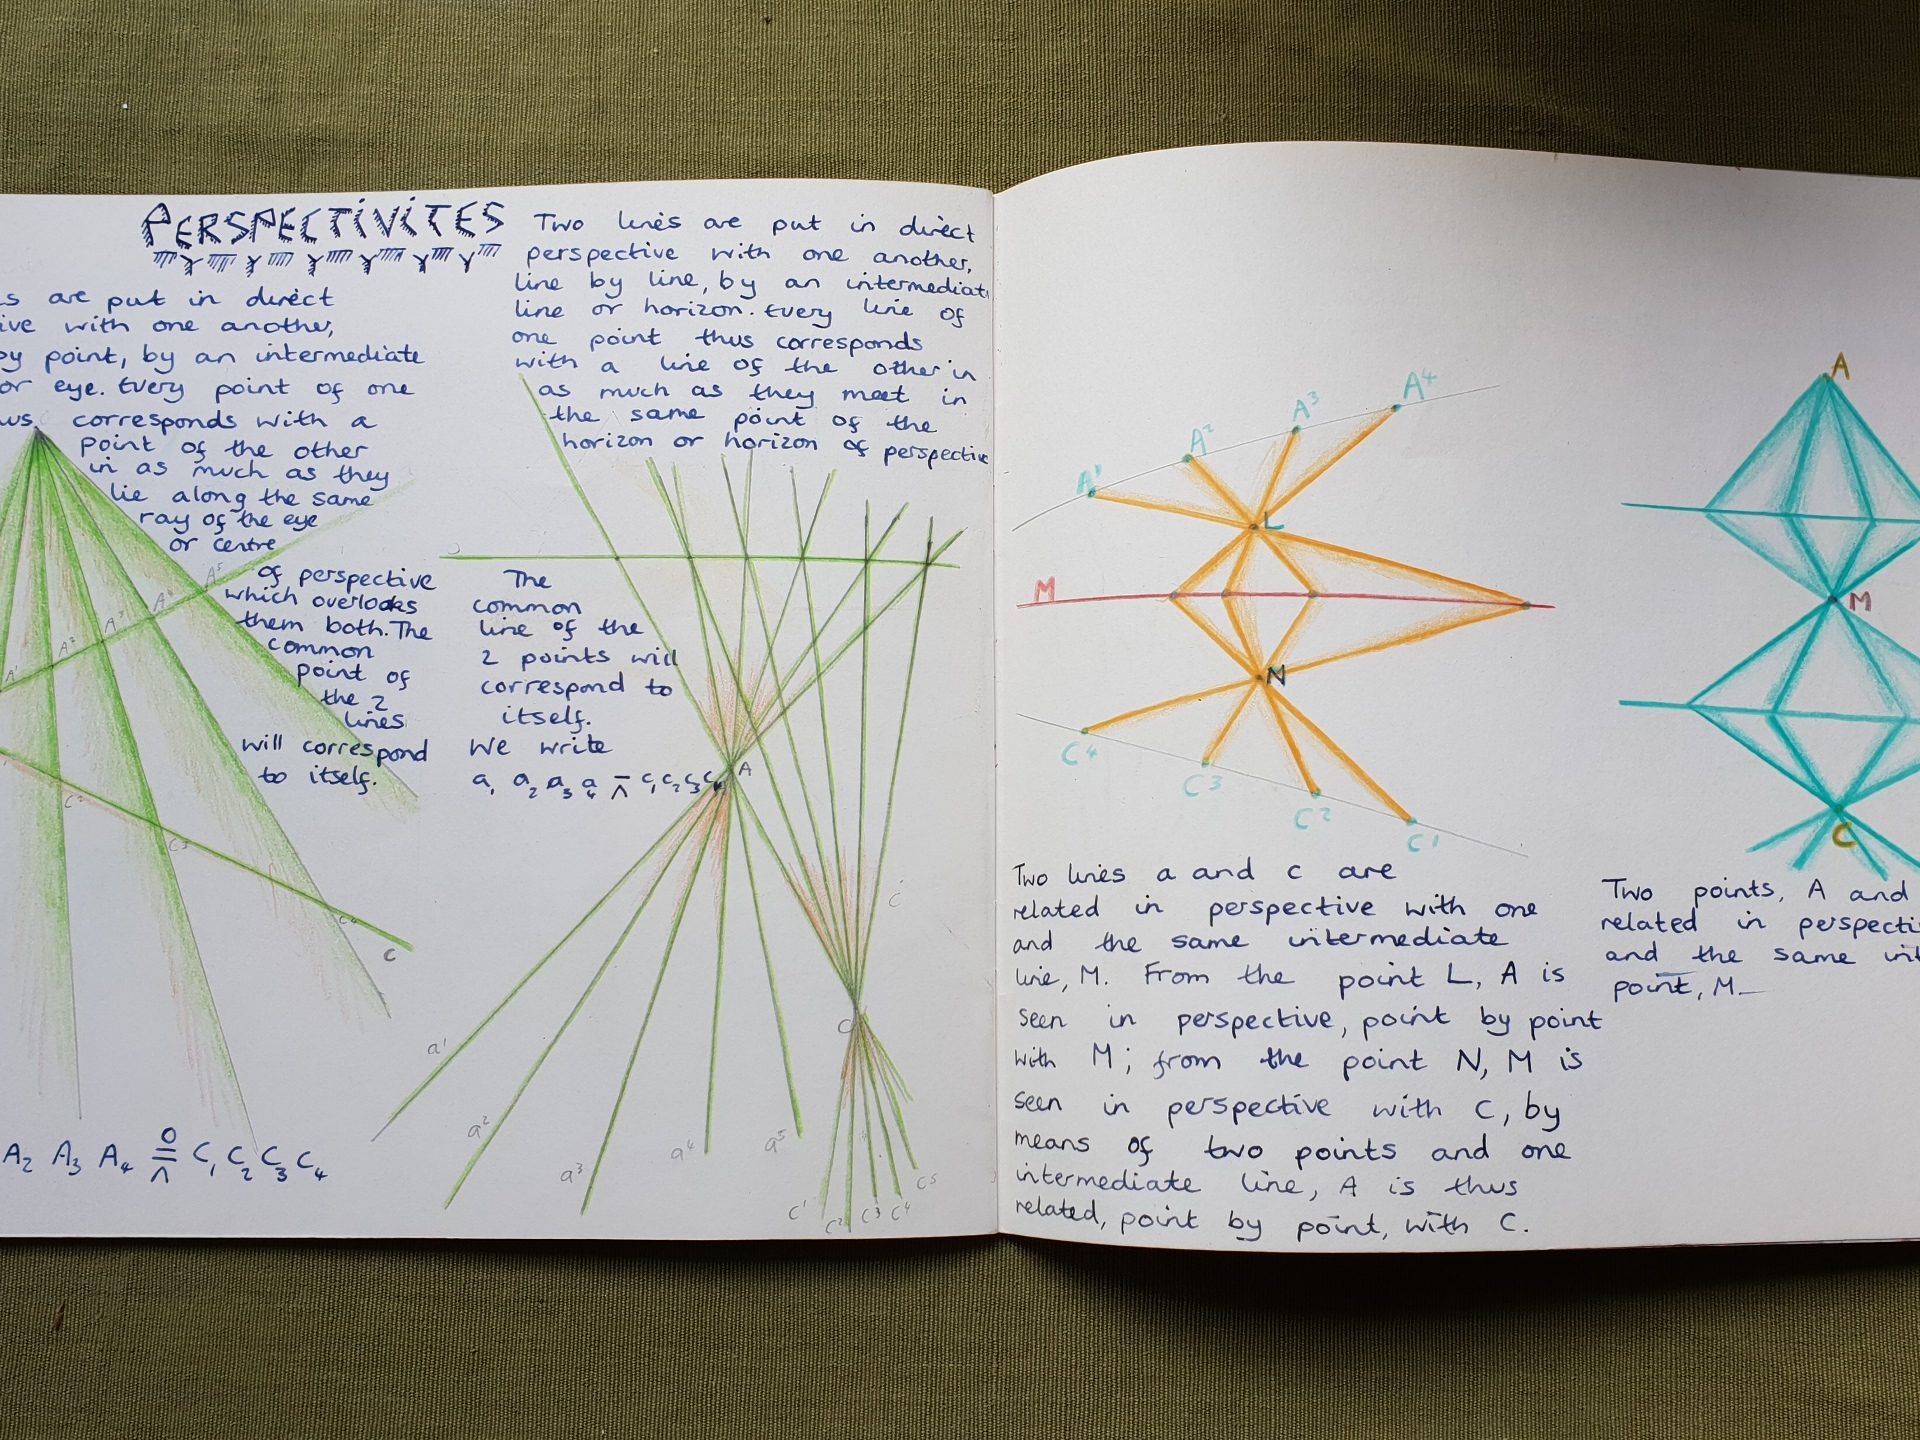 PERSPECTIVITES
s are put in direct
ive with one another,
by point, by an intermediate
or eye. Every point of one
us corresponds with a
point of the other
in as much as they
lie along the same
ray of the eye
or centre
of perspective
which overlooks
them both. The
common
point of
the 2
lines
will correspond
to itself.
A¹ A² A³ A⁴ A⁵
C² C³ C⁴
C
A₂ A₃ A₄ O ⩞ C₁ C₂ C₃ C₄
Two lines are put in direct
perspective with one another,
line by line, by an intermediat
line or horizon. Every line of
one point thus corresponds
with a line of the other in
as much as they meet in
the same point of the
horizon or horizon of perspective
The
common
line of the
2 points will
correspond to
itself.
We write
a₁ a₂ a₃ a₄ ⊼ c₁ c₂ c₃ c₄
A
C
a¹
a²
a³
a⁴
a⁵
C¹ C² C³ C⁴ C⁵
A¹ A² A³ A⁴
L
M
N
C⁴ C³ C² C¹
Two lines a and c are
related in perspective with one
and the same intermediate
line, M. From the point L, A is
seen in perspective, point by point
with M; from the point N, M is
seen in perspective with C, by
means of two points and one
intermediate line, A is thus
related, point by point, with C.
A
M
C
Two points, A and
related in perspecti
and the same int
point, M